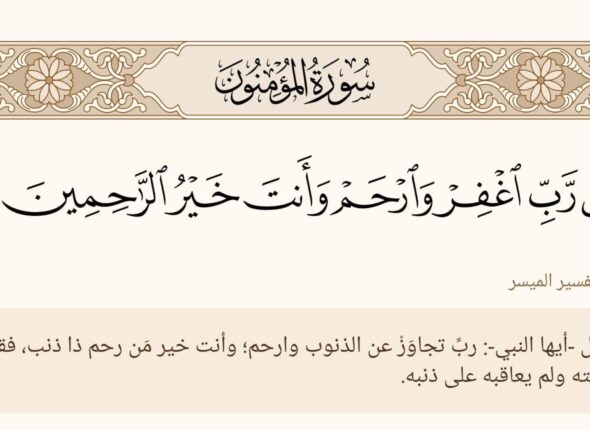 سُورَةُ المُؤۡمِنُونَ
رَّبِّ ٱغۡفِرۡ وَٱرۡحَمۡ وَأَنتَ خَيۡرُ ٱلرَّٰحِمِينَ
الميسر
-أيها النبي-: ربِّ تجاوَزْ عن الذنوب وارحم؛ وأنت خير مَن رحم ذا ذنب،
ولم يعاقبه على ذنبه.